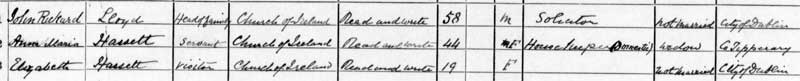 John Rickard Lloyd Head of Family Church of Ireland Read and write 58 M Solicitor not married City of Dublin
Anna Maria Hassett Servant Church of Ireland Read and write 44 F Housekeeper (Domestic) widow Co Tipperary
Elizabeth Hassett Visitor Church of Ireland Read and write 19 F not married City of Dublin